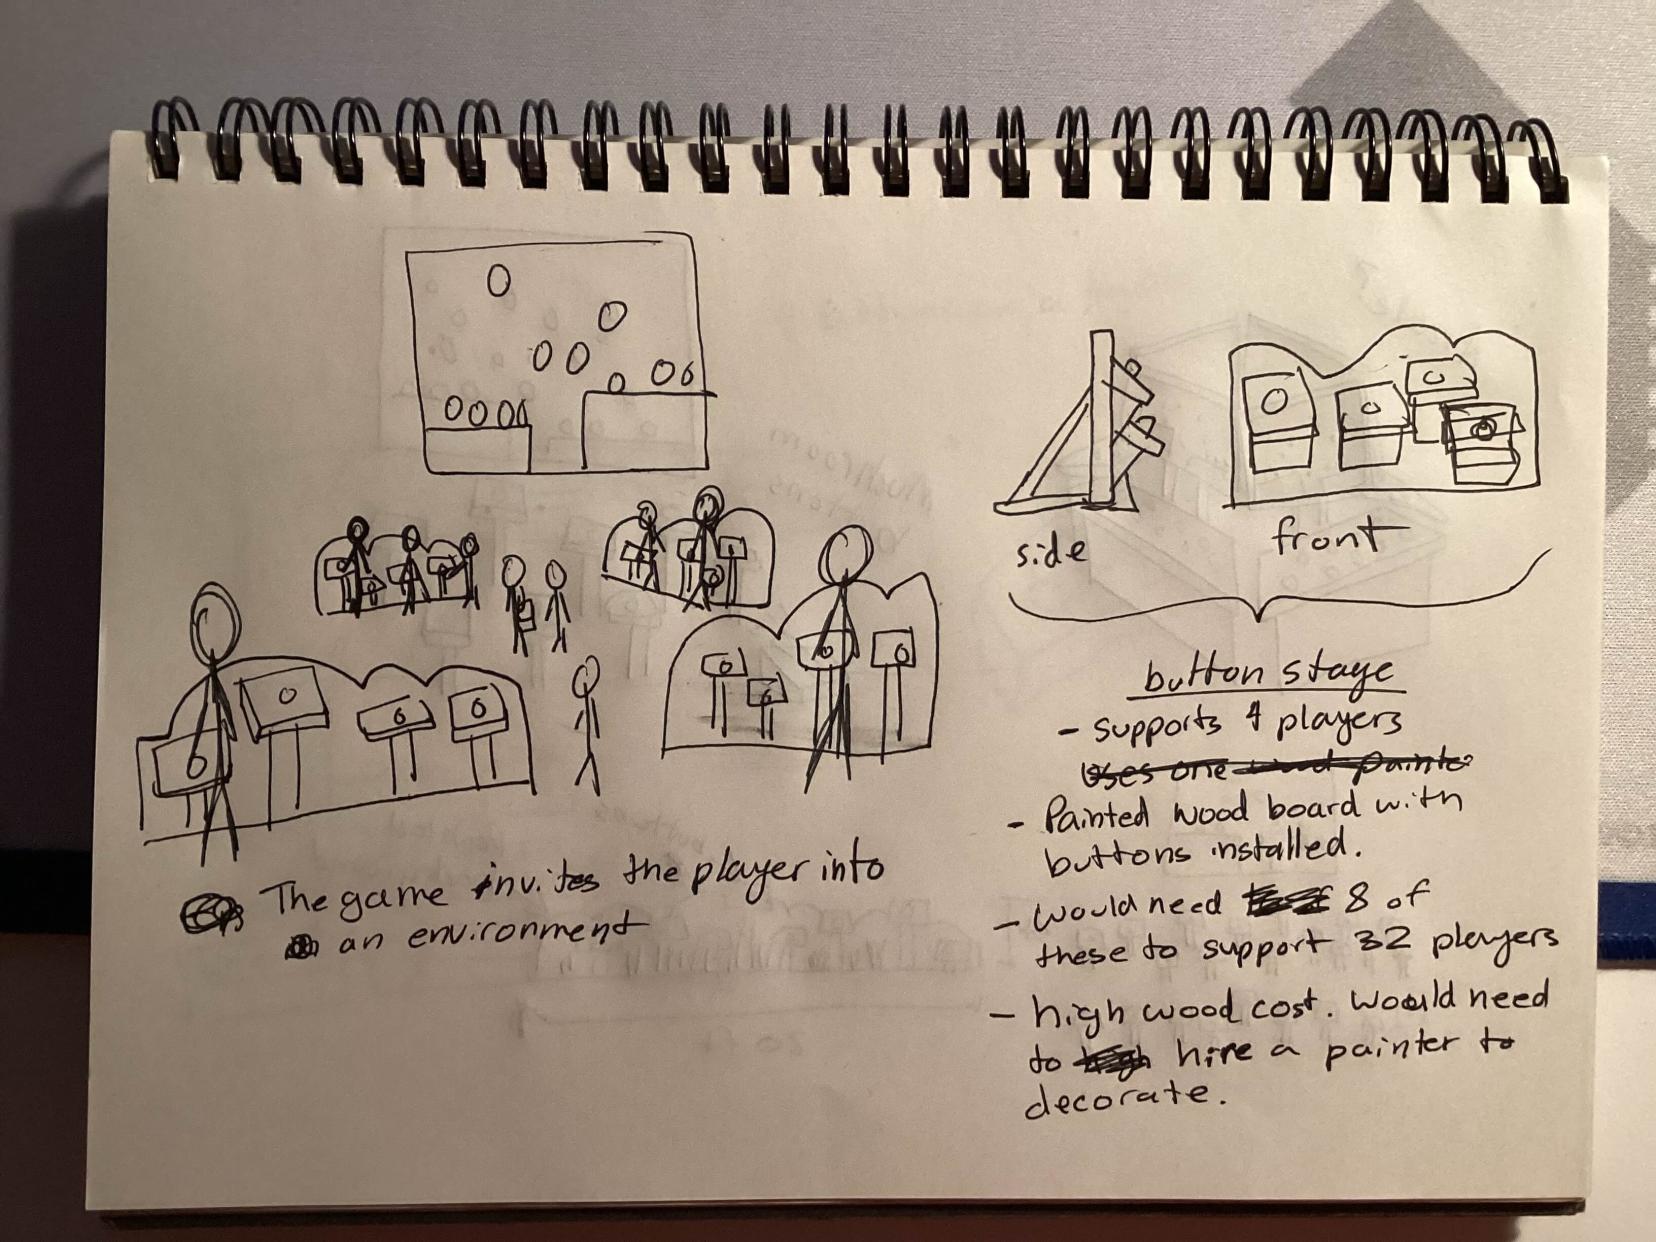 side
front
button stage
- supports 4 players
Uses one wood painte
- Painted wood board with
buttons installed.
- would need 8 of
these to support 32 players
- high wood cost. would need
to hire a painter to
decorate.
The game invites the player into
an environment